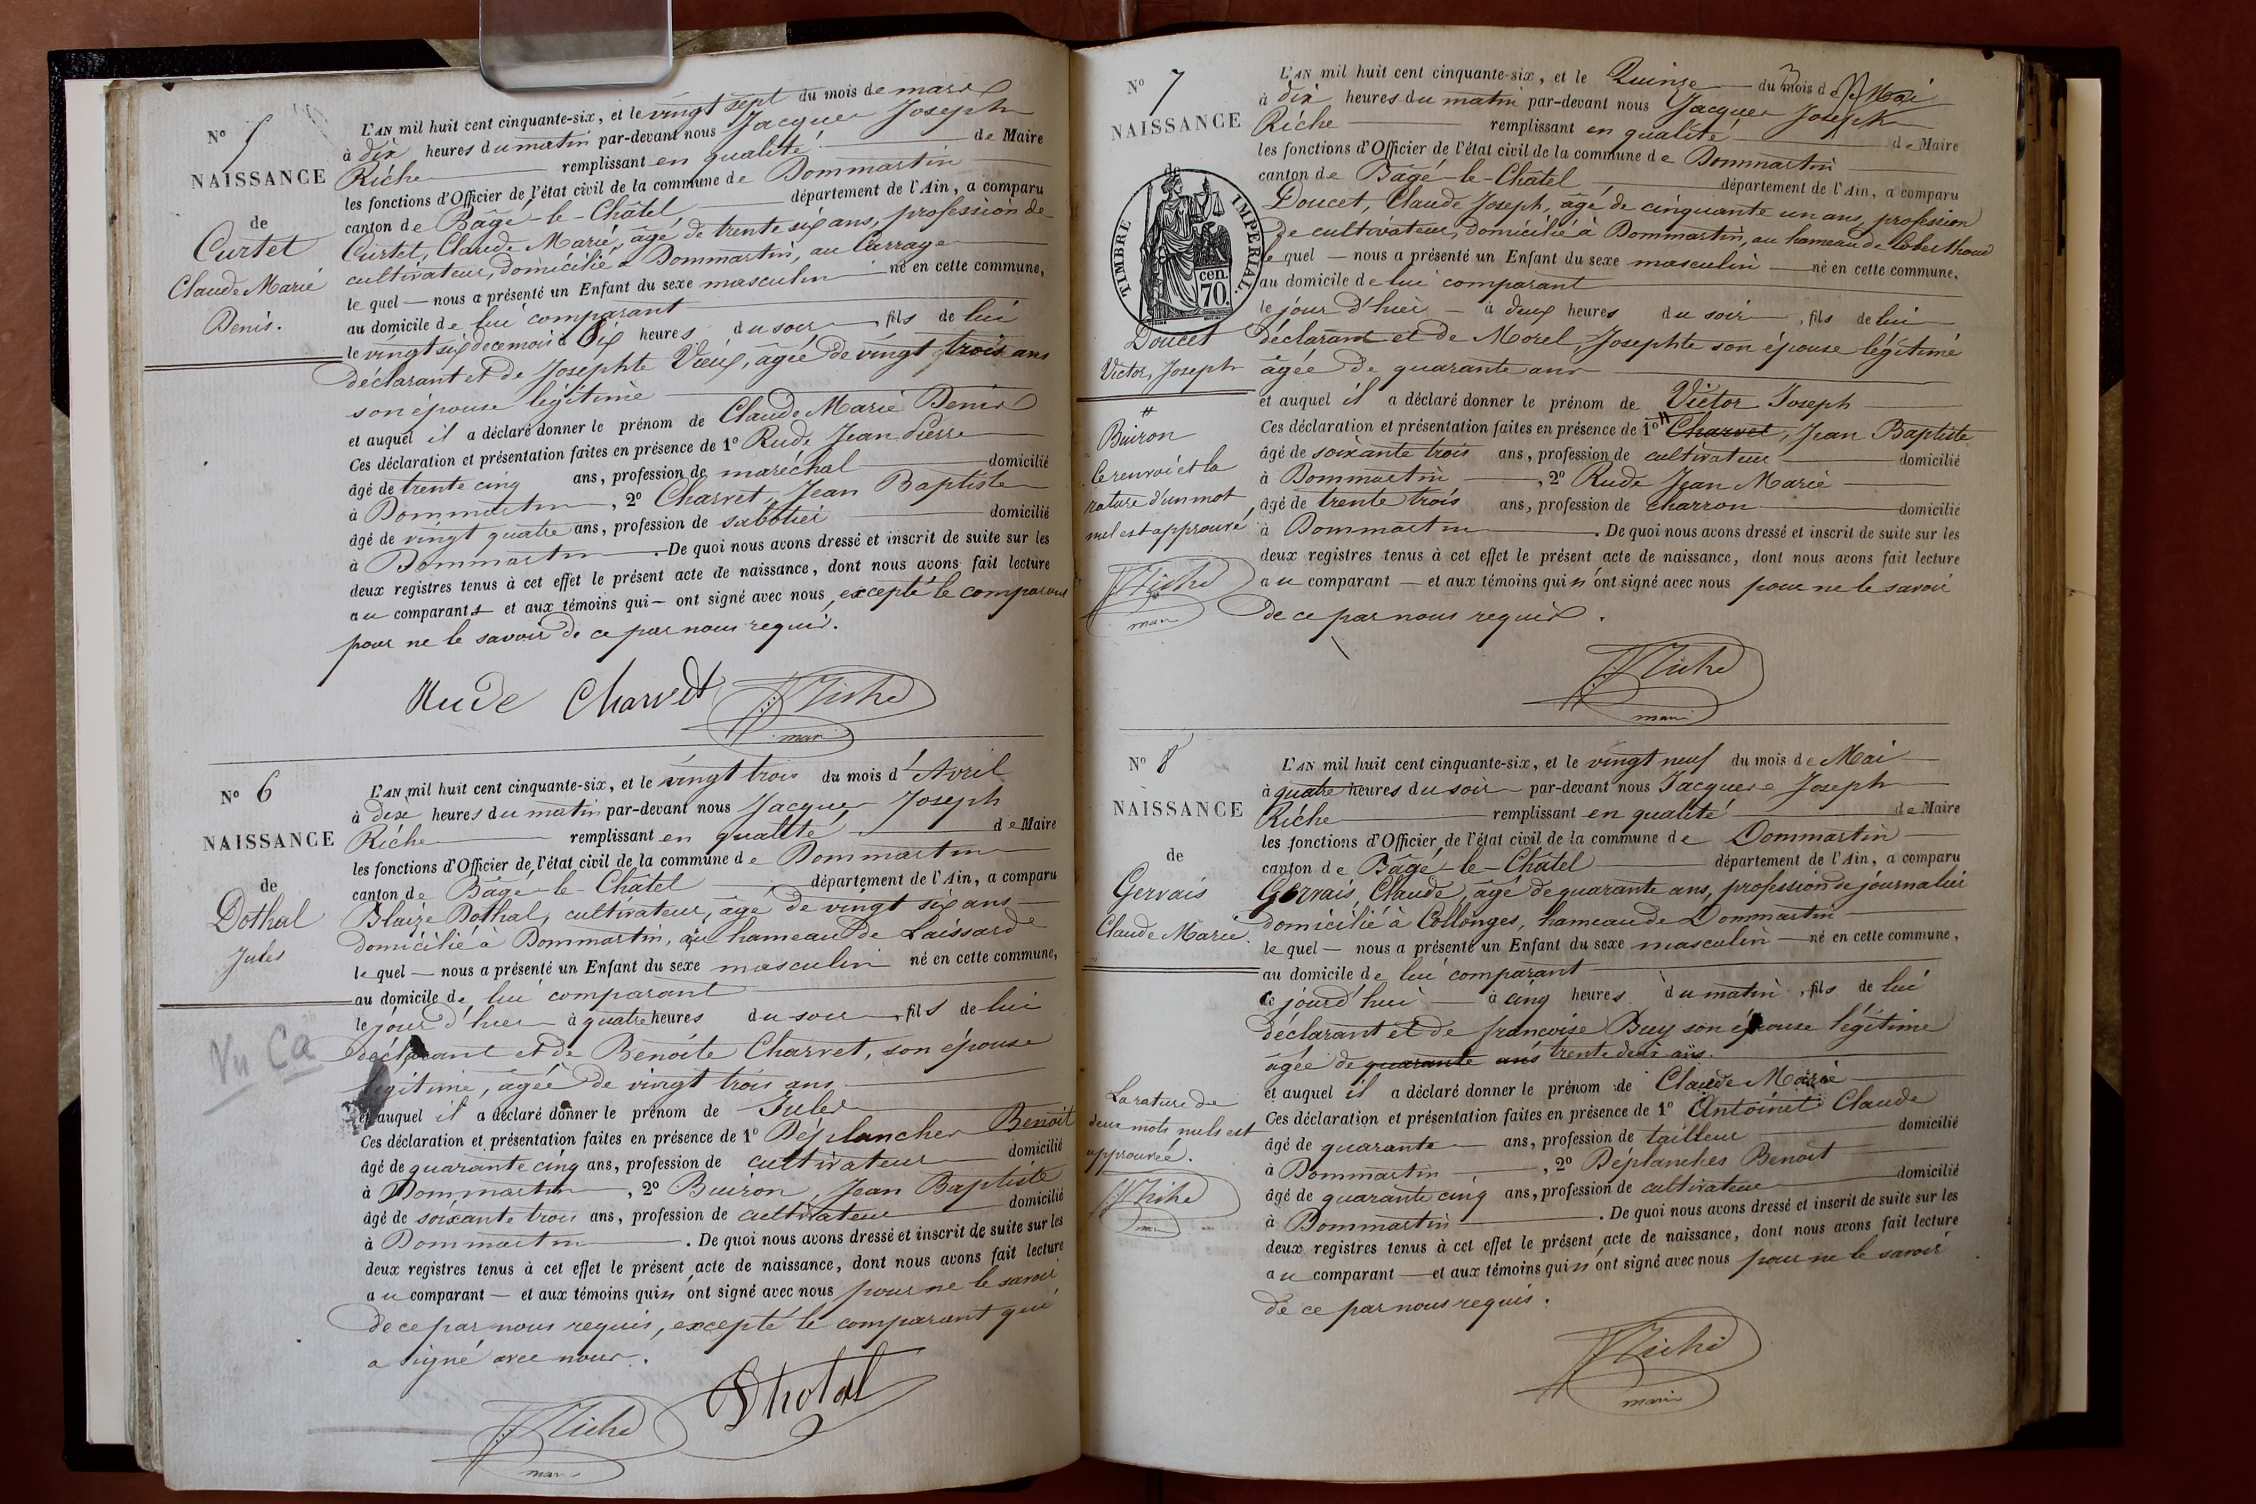 N° 5
NAISSANCE
de
Curtet
Claude Marie
Denis.
L'AN mil huit cent cinquante-six, et le vingt sept du mois de mars
à dix heures du matin par-devant nous Jacques Joseph
Riche remplissant en qualité de Maire
les fonctions d'Officier de l'état civil de la commune de Dommartin
canton de Bâgé-le-Châtel département de l'Ain, a comparu
Curtet, Claude Marie, âgé de trente six ans, profession de
cultivateur, domicilié à Dommartin, au Carrage
le quel — nous a présenté un Enfant du sexe masculin né en cette commune,
au domicile de lui comparant
le vingt six de ce mois à six heures du soir, fils de lui
déclarant et de Josephte Vieux, âgée de vingt trois ans
son épouse légitime
et auquel il a déclaré donner le prénom de Claude Marie Denis
Ces déclaration et présentation faites en présence de 1° Rude Jean Pierre
âgé de trente cinq ans, profession de maréchal domicilié
à Dommartin, 2° Charvet, Jean Baptiste
âgé de vingt quatre ans, profession de sabotier domicilié
à Dommartin. De quoi nous avons dressé et inscrit de suite sur les
deux registres tenus à cet effet le présent acte de naissance, dont nous avons fait lecture
au comparant et aux témoins qui — ont signé avec nous, excepté le comparant
pour ne le savoir de ce par nous requis.
Rude Charvet JJ Riche
maire
N° 6
NAISSANCE
de
Dothal
Jules
Vu Ca
L'AN mil huit cent cinquante-six, et le vingt trois du mois d'Avril
à dix heures du matin par-devant nous Jacques Joseph
Riche remplissant en qualité de Maire
les fonctions d'Officier de l'état civil de la commune de Dommartin
canton de Bâgé-le-Châtel département de l'Ain, a comparu
Blaize Dothal, cultivateur, âgé de vingt six ans
domicilié à Dommartin, au hameau de Laissard
le quel — nous a présenté un Enfant du sexe masculin né en cette commune,
au domicile de lui comparant
le jour d'hier à quatre heures du soir, fils de lui
déclarant et de Benoite Charvet, son épouse
légitime, âgée de vingt trois ans
et auquel il a déclaré donner le prénom de Jules
Ces déclaration et présentation faites en présence de 1° Déplanches Benoit
âgé de quarante cinq ans, profession de cultivateur domicilié
à Dommartin, 2° Buiron, Jean Baptiste
âgé de soixante trois ans, profession de cultivateur domicilié
à Dommartin. De quoi nous avons dressé et inscrit de suite sur les
deux registres tenus à cet effet le présent acte de naissance, dont nous avons fait lecture
au comparant — et aux témoins qui n'ont signé avec nous pour ne le savoir
de ce par nous requis, excepté le comparant qui
a signé avec nous.
JJ Riche Dhotal
maire
N° 7
NAISSANCE
TIMBRE IMPERIAL.
70 cen.
Doucet
Victor, Joseph
#
Buiron
le renvoi et la
rature d'un mot
nul est approuvé
JJ Riche
maire
L'AN mil huit cent cinquante-six, et le Quinze du mois de Mai
à dix heures du matin par-devant nous Jacques Joseph
Riche remplissant en qualité de Maire
les fonctions d'Officier de l'état civil de la commune de Dommartin
canton de Bâgé-le-Châtel département de l'Ain, a comparu
Doucet, Claude Joseph, âgé de cinquante un ans, profession
de cultivateur, domicilié à Dommartin, au hameau de
le quel — nous a présenté un Enfant du sexe masculin — né en cette commune,
au domicile de lui comparant
le jour d'hier — à deux heures du soir, fils de lui
déclarant et de Morel, Josephte son épouse légitime
âgée de quarante ans
et auquel il a déclaré donner le prénom de Victor Joseph
Ces déclaration et présentation faites en présence de 1° # Charvet, Jean Baptiste
âgé de soixante trois ans, profession de cultivateur domicilié
à Dommartin, 2° Rude Jean Marie
âgé de trente trois ans, profession de charron domicilié
à Dommartin. De quoi nous avons dressé et inscrit de suite sur les
deux registres tenus à cet effet le présent acte de naissance, dont nous avons fait lecture
au comparant — et aux témoins qui n'ont signé avec nous pour ne le savoir
de ce par nous requis.
JJ Riche
maire
N° 8
NAISSANCE
de
Gervais
Claude Marie.
La rature de
deux mots nuls est
approuvée.
JJ Riche
maire
L'AN mil huit cent cinquante-six, et le vingt neuf du mois de Mai
à quatre heures du soir par-devant nous Jacques Joseph
Riche remplissant en qualité de Maire
les fonctions d'Officier de l'état civil de la commune de Dommartin
canton de Bâgé-le-Châtel département de l'Ain, a comparu
Gervais, Claude, âgé de quarante ans, profession de journalier
domicilié à Collonges, hameau de Dommartin
le quel — nous a présenté un Enfant du sexe masculin — né en cette commune,
au domicile de lui comparant
ce jourd'hui — à cinq heures du matin, fils de lui
déclarant et de françoise Buy son épouse légitime
âgée de quarante ans trente deux ans.
et auquel il a déclaré donner le prénom de Claude Marie
Ces déclaration et présentation faites en présence de 1° Antoinet Claude
âgé de quarante ans, profession de tailleur domicilié
à Dommartin, 2° Déplanches Benoit
âgé de quarante cinq ans, profession de cultivateur domicilié
à Dommartin. De quoi nous avons dressé et inscrit de suite sur les
deux registres tenus à cet effet le présent acte de naissance, dont nous avons fait lecture
au comparant — et aux témoins qui n'ont signé avec nous pour ne le savoir
de ce par nous requis.
JJ Riche
maire